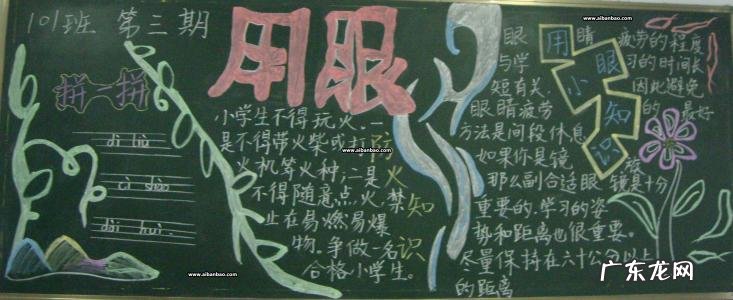 101班 第三期
拼一拼
dì liù
cì shào
dài huì.
用眼
小学生不得玩火,一
是不得带火柴或打
火机等火种;二是
不得随意点火,禁
止在易燃易爆
物。争做一名
合格小学生。
防火知识
眼睛疲劳的程度
与学习的时间长
短有关,因此避免
眼睛疲劳的最好
方法是间段休息
如果你是镜族
那么副合适眼镜是十分
重要的.学习的姿
势和距离也很重要。
尽量保持在六十公分以上
的距离
用眼小知识
www.aibanbao.com
www.aibanbao.com
www.aibanbao.com
www.aibanbao.com
广东龙网